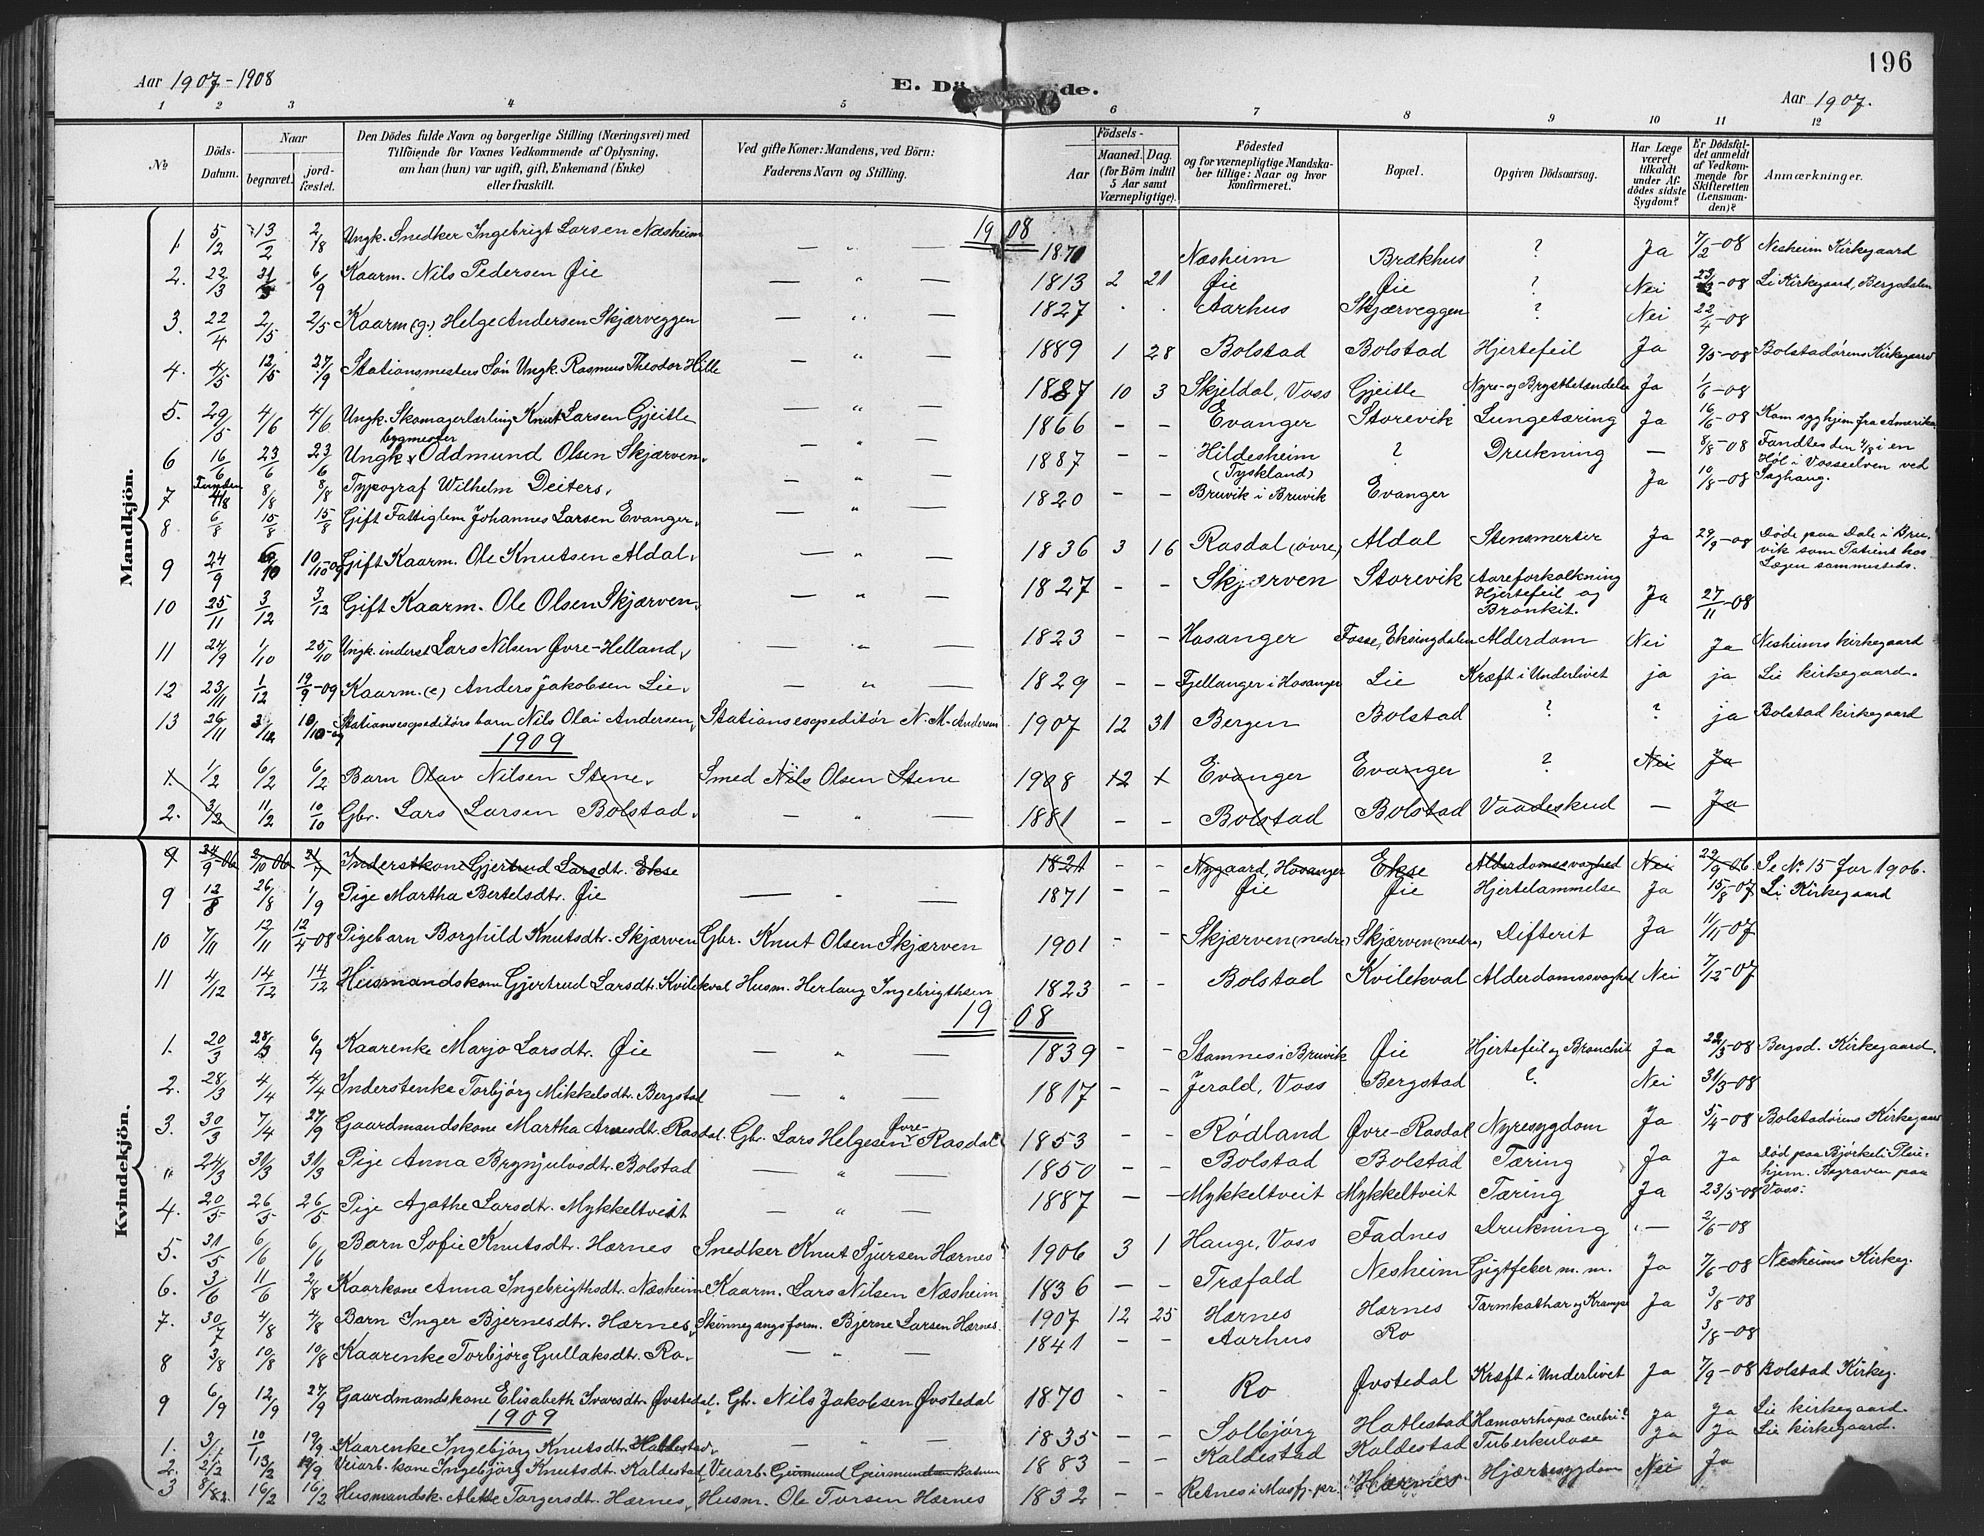 196
Aar 1907-1908
E. Dö de.
Aar 1907.
1 2 3 4 5 6 7 8 9 10 11 12
No Döds-Datum. Naar begravet. jord-fæstet. Den Dödes fulde Navn og borgerlige Stilling (Næringsvei) med Tilföiende for Voxnes Vedkommende af Oplysning, om han (hun) var ugift, gift, Enkemand (Enke) eller fraskilt. Ved gifte Koner: Mandens, ved Börn: Faderens Navn og Stilling. Födsels- Aar Maaned. Dag. (for Börn indtil 5 Aar samt Værnepligtige). Födested og for værnepligtige Mandska-ber tillige: Naar og hvor konfirmeret. Bopæl. Opgiven Dödsaarsag. Har Læge været tilkaldt under Af-dödes sidste Sygdom? Er Dödsfal-det anmeldt af Vedkom-mende for Skifteretten (Lensman-den)? Anmærkninger.
Mandkjön.
1908
1. 5/2 13/2 2/8 Ungk. Snedker Ingebrigt Larsen Næsheim — „ — 1870 Næsheim Brækhus ? Ja 7/2-08 Nesheim Kirkegaard
2. 22/3 31/3 6/9 Kaarm. Nils Pedersen Øie — „ — 1813 2 21 Øie Øie ? Nei -08 Li Kirkegaard, Bergsdalen
3. 22/4 2/5 2/5 Kaarm (g.) Helge Andersen Skjærveggen — „ — 1827 Aarhus Skjærveggen ? Nei 22/4-08
4. 4/5 12/5 27/9 Stationsmesters Sön Ungk. Rasmus Theodor Hille — „ — 1889 1 28 Bolstad Bolstad Hjertefeil Ja 9/5-08 Bolstadörens Kirkegaard
5. 29/5 4/6 4/6 Ungk. Skomagerlærling Knut Larsen Gjeitle — „ — 1887 10 3 Skjeldal, Voss Gjeitle Nyre- og Brystbetændelse Ja 1/6-08
6 16/6 23/6 23/6 Ungk. bygmester Oddmund Olsen Skjærven. — „ — 1866 — — Evanger Storevik Lungetæring Ja 16/6-08 Kom syg hjem fra Amerika
7 Funden 4/8 8/8 8/8 Typograf Wilhelm Deiters. — „ — 1887 — — Hildesheim (Tyskland) ? Drukning — 8/8-08 Fandtes den 4/8 i en Höl i Vosseelven ved Saghaug.
8 6/8 15/8 15/8 Gift Fattiglem Johannes Larsen Evanger. — „ — 1820 — — Bruvik i Bruvik Evanger Ja 10/8-08
9 24/9 /10 10/10-09 Gift Kaarm. Ole Knutsen Aldal. — „ — 1836 3 16 Rasdal (övre) Aldal Stensmerter Ja 29/9-08 Döde paa Dale i Bru-vik som Patient hos Lægen sammesteds.
10 25/11 3/12 3/12 Gift Kaarm. Ole Olsen Skjærven. — „ — 1827 — — Skjærven Storevik Aareforkalkning Hjertefeil og Bronkit. Ja 27/11-08
11 24/9 1/10 25/10 Ungk. inderst Lars Nilsen Øvre-Helland. — „ — 1823 — — Hosanger Fosse, Eksingdalen Alderdom Nei Ja Nesheims kirkegaard
12 23/11 1/12 19/9-09 Kaarm. (e) Anders Jakobsen Lie. — „ — 1829 — — Fjellanger i Hosanger Lie Kræft i Underlivet ja ja Lie kirkegaard.
13 26/11 3/12 10/10-09 Stationsexpeditörs barn Nils Olai Andersen. Stationsexpeditör N. M. Andersen 1907 12 31 Bergen Bolstad ? ? ja Bolstad kirkegaard
1909
1. 1/2 6/2 6/2 Barn Olav Nilsen Stene. Smed Nils Olsen Stene 1908 12 Evanger Evanger ? Nei Ja
2. 3/2 11/2 10/10 Gbr. Lars Larsen Bolstad. — „ — 1881 — — Bolstad Bolstad Vaadeskud — Ja
Kvindekjön.
9 24/9-06 2/10-06 Inderstkone Gjertrud Larsdt. Ekse 1821 — — Nygaard, Hosanger Ekse Alderdomssvaghed Nei 22/9-06. Se No. 15 for 1906.
9 12/8 26/8 1/9 Pige Martha Bertelsdtr. Øie — „ — 1871 — — Øie Øie Hjertelammelse Ja 15/8-07 Li Kirkegaard
10 7/11 12/11 12/4-08 Pigebarn Borghild Knutsdtr. Skjærven Gbr. Knut Olsen Skjærven 1901 - - Skjærven (nedre) Skjærven (nedre) Difterit Ja 11/11-07
11 4/12 14/12 14/12 Husmandskone Gjertrud Larsdtr. Kvilekval Husm. Herlaug Ingebrigthsen 1823 — — Bolstad Kvilekval Alderdomssvaghed Nei 7/12-07
1908
1. 20/3 28/3 6/9 Kaarenke Marjo Larsdtr. Øie — „ — 1839 — — Stamnes i Bruvik Øie Hjertefeil og Bronchit Ja 22/3-08 Bergsd. Kirkegaard.
2. 28/3 4/4 4/4 Inderstenke Torbjörg Mikkelsdtr. Bergstad — „ — 1817 — — Jerald, Voss Bergstad ? Nei 31/3-08
3. 30/3 7/4 27/9 Gaardmandskone Martha Arnesdtr. Rasdal. Gbr. Lars Helgesen Øvre-Rasdal 1853 — — Rödland Øvre-Rasdal Nyresygdom Ja 5/4-08 Bolstadörens Kirkegaard
„ 24/3 31/3 31/3 Pige Anna Brynjulvsdtr. Bolstad — „ — 1850 — — Bolstad Bolstad Tæring Ja Ja Död paa Bjørkeli Pleie-hjem. Begraven paa Voss.
4. 20/5 26/5 26/5 Pige Agathe Larsdtr. Mykkeltveidt — „ — 1887 — — Mykkeltveit Mykkeltveit Tæring Ja 23/5-08
5. 31/5 6/6 6/6 Barn Sofie Knutsdtr. Hærnes Snedker Knut Sjursen Hærnes 1906 3 1 Hauge, Voss Fadnes Drukning — 2/6-08
6. 3/6 11/6 2/8 Kaarkone Anna Ingebrigthsdtr. Næsheim Kaarm. Lars Nilsen Næsheim 1836 — — Træfald Nesheim Gigtfeber m. m. Ja 7/6-08 Nesheims Kirkeg.
7. 30/7 4/8 4/8 Barn Inger Bjernesdtr. Hærnes. Skinnegangsform. Bjerne Larsen Hærnes. 1907 12 25 Hærnes Hærnes Tarmkathar og Krampe Ja 3/8-08
8 3/8 10/8 10/8 Kaarenke Torbjörg Gullaksdtr. Ro. — „ — 1841 — — Aarhus Ro 3/8-08
9 6/9 12/9 27/9 Gaardmandskone Elisabeth Ivarsdtr. Øvstedal. Gbr. Nils Jakobsen Øvstedal 1870 - - Ro Øvstedal Kræft i Underlivet Ja 7/9-08 Bolstad Kirkeg.
1909
1. 3/1 10/1 19/9 Kaarenke Ingebjörg Knutsdtr. Hatlestad. — „ — 1835 — — Solbjörg Hatlestad Hæmorrhagia cerebri? Ja Ja Lie kirkegaard.
2. 2/2 13/2 19/9 Veiarb. kone Ingebjörg Knutsdtr. Kaldestad. Veiarb. 1883 — — Kaldestad Kaldestad Tuberkulose Ja Ja Lie kirkegaard.
3 8/2 16/2 16/2 Husmandsk. Alette Torgersdtr. Hærnes. Husm. Ole Torsen Hærnes 1832 - - Retnes i Masfj. pr. Hærnes Hjertesygdom Nei Ja